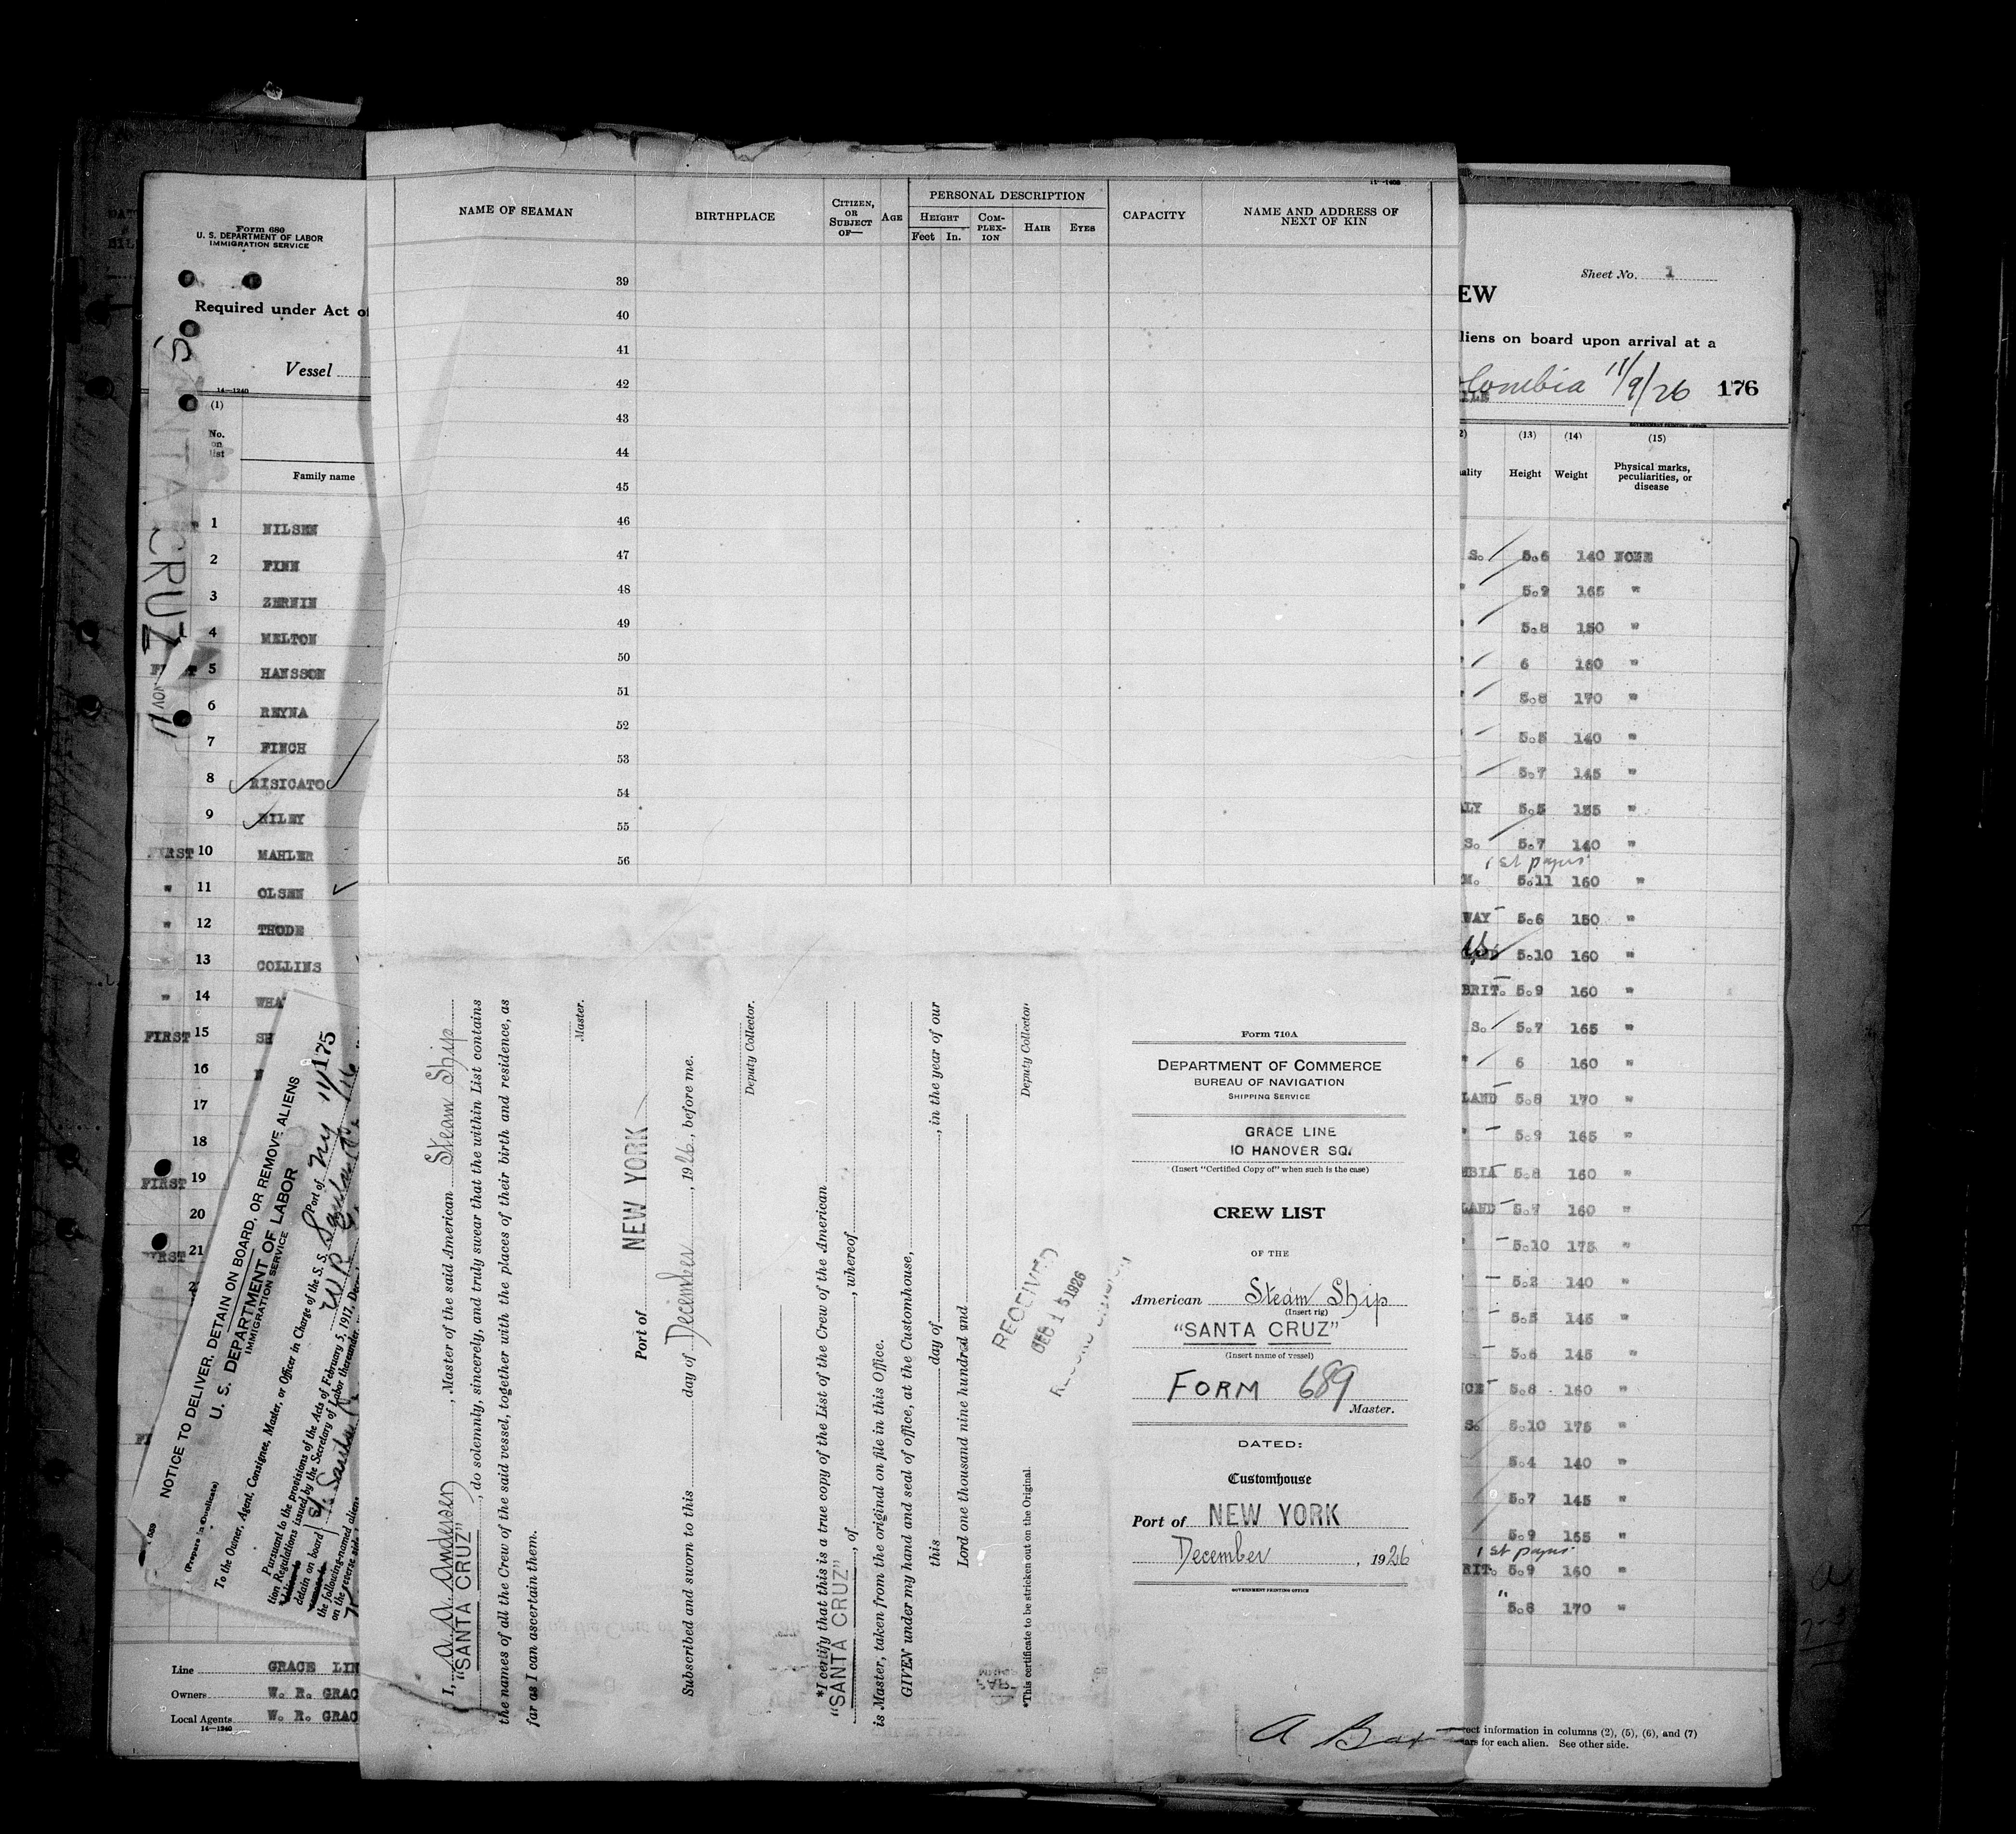 Form 680
U. S. DEPARTMENT OF LABOR
IMMIGRATION SERVICE
Required under Act of
Vessel
14—1240
(1)
No.
on
list
Family name
SANTA CRUZ
NOV
1 NILSEN
2 FINN
3 ZERNIN
4 MELTON
5 HANSSON
6 REYNA
7 FINCH
8 RISICATO
9 RILEY
FIRST 10 MAHLER
" 11 OLSEN
" 12 THODE
13 COLLINS
" 14 WHA
FIRST 15 SH
16
17
18
FIRST 19
20
FIRST 21
Line GRACE LIN
Owners W. R. GRAC
Local Agents W. R. GRAC
14—1240
175
NOTICE TO DELIVER, DETAIN ON BOARD, OR REMOVE ALIENS
U. S. DEPARTMENT OF LABOR
IMMIGRATION SERVICE
(Prepare in Duplicate)
Port of NY 11/16
To the Owner, Agent, Consignee, Master, or Officer in Charge of the S. S. Santa
Pursuant to the provisions of the Acts of February 5, 1917,
tion Regulations issued by the Secretary of Labor thereunder,
detain on board
the following-named aliens
on the reverse side
NAME OF SEAMAN
BIRTHPLACE
CITIZEN, OR SUBJECT OF—
AGE
PERSONAL DESCRIPTION
HEIGHT
Feet In.
COM-PLEX-ION
HAIR
EYES
CAPACITY
NAME AND ADDRESS OF NEXT OF KIN
39
40
41
42
43
44
45
46
47
48
49
50
51
52
53
54
55
56
I, A. A. Andersen, Master of the said American Steam Ship
"SANTA CRUZ", do solemnly, sincerely, and truly swear that the within List contains
the names of all the Crew of the said vessel, together with the places of their birth and residence, as
far as I can ascertain them.
Master.
Port of NEW YORK
Subscribed and sworn to this day of December, 1926, before me.
Deputy Collector.
*I certify that this is a true copy of the List of the Crew of the American
"SANTA CRUZ", of , whereof
is Master, taken from the original on file in this Office.
GIVEN under my hand and seal of office, at the Customhouse,
this day of , in the year of our
Lord one thousand nine hundred and
Deputy Collector
*This certificate to be stricken out on the Original.
RECEIVED
DEC 15 1926
Form 710A
DEPARTMENT OF COMMERCE
BUREAU OF NAVIGATION
SHIPPING SERVICE
GRACE LINE
10 HANOVER SQ.
(Insert "Certified Copy of" when such is the case)
CREW LIST
OF THE
American Steam Ship
(Insert rig)
"SANTA CRUZ"
(Insert name of vessel)
FORM 689
Master.
DATED:
Customhouse
Port of NEW YORK
December, 1926
GOVERNMENT PRINTING OFFICE
Sheet No. 1
EW
liens on board upon arrival at a
lombia 11/9/26 176
(13) (14) (15)
ality Height Weight Physical marks, peculiarities, or disease
S. 5.6 140 NONE
" 5.9 165 "
5.8 150 "
6 180 "
5.8 170 "
5.5 140 "
5.7 145 "
ALY 5.5 155 "
S. 5.7 140 "
M. 5.11 160 "
WAY 5.6 150 "
5.10 160 "
BRIT. 5.9 150 "
S. 5.7 165 "
" 6 160 "
LAND 5.8 170 "
" 5.9 165 "
MBIA 5.8 160 "
LAND 5.7 160 "
" 5.10 175 "
5.2 140 "
5.5 145 "
5.6 145 "
NCE 5.8 160 "
S. 5.10 175 "
5.4 140 "
5.7 145 "
5.9 165 "
RIT. 5.9 160 "
" 5.8 170 "
A
rect information in columns (2), (5), (6), and (7)
ars for each alien. See other side.